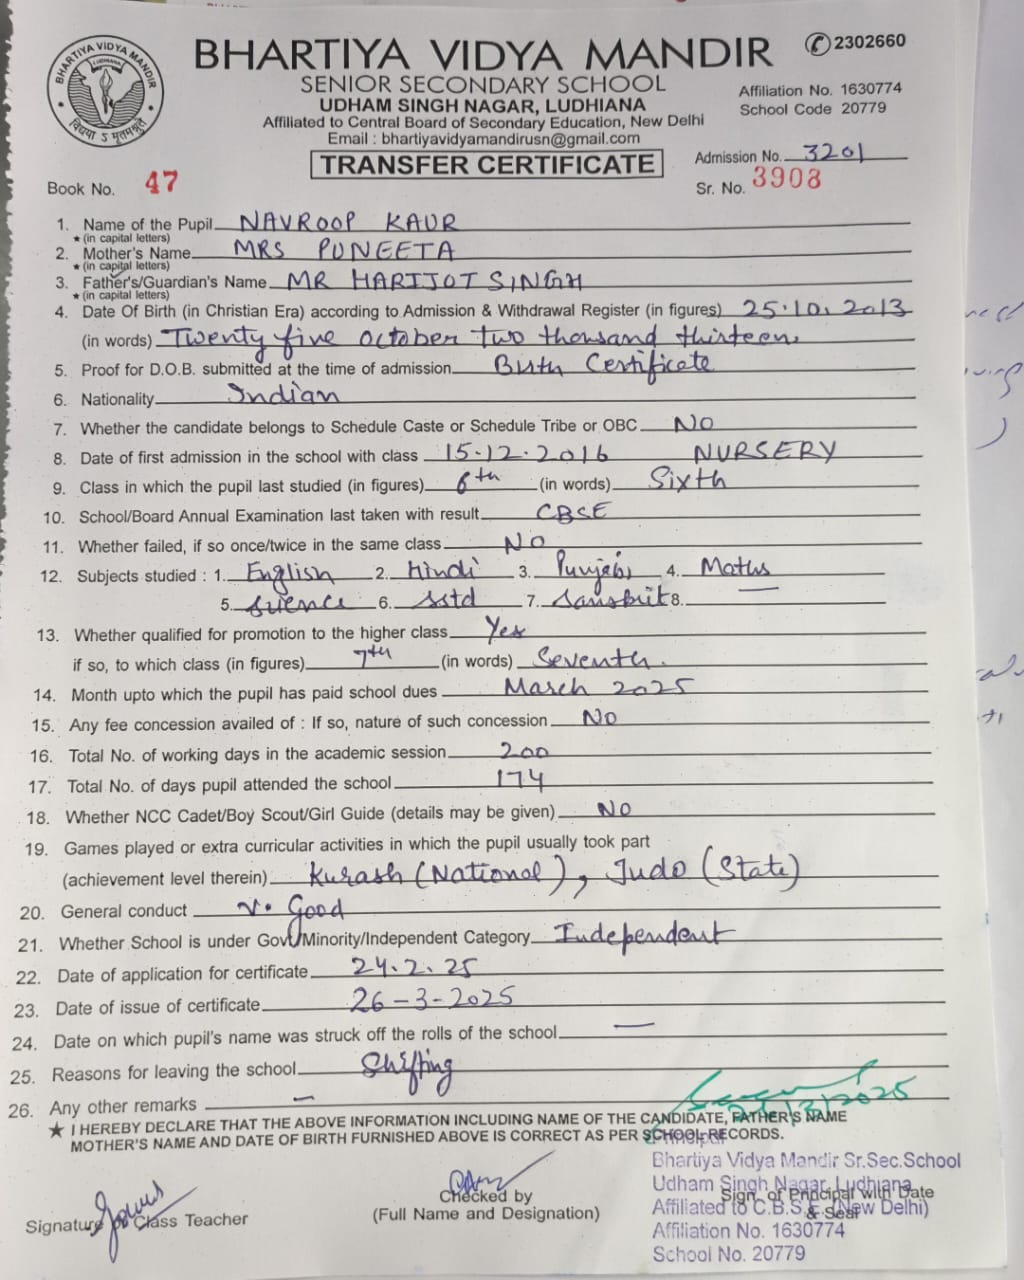 BHARTIYA VIDYA MANDIR
LUDHIANA
विद्यया ऽ मृतमश्नुते
BHARTIYA VIDYA MANDIR
✆2302660
SENIOR SECONDARY SCHOOL
UDHAM SINGH NAGAR, LUDHIANA
Affiliation No. 1630774
School Code 20779
Affiliated to Central Board of Secondary Education, New Delhi
Email : bhartiyavidyamandirusn@gmail.com
TRANSFER CERTIFICATE
Admission No. 3201
Book No. 47
Sr. No. 3908
1. Name of the Pupil NAVROOP KAUR
★ (in capital letters)
2. Mother's Name MRS PUNEETA
★ (in capital letters)
3. Father's/Guardian's Name MR HARIJOT SINGH
★ (in capital letters)
4. Date Of Birth (in Christian Era) according to Admission & Withdrawal Register (in figures) 25.10.2013
(in words) Twenty five october two thousand thirteen.
5. Proof for D.O.B. submitted at the time of admission Birth Certificate
6. Nationality Indian
7. Whether the candidate belongs to Schedule Caste or Schedule Tribe or OBC NO
8. Date of first admission in the school with class 15.12.2016 NURSERY
9. Class in which the pupil last studied (in figures) 6th (in words) Sixth
10. School/Board Annual Examination last taken with result CBSE
11. Whether failed, if so once/twice in the same class NO
12. Subjects studied : 1. English 2. Hindi 3. Punjabi 4. Maths
5. Science 6. SStd 7. Sanskrit 8.
13. Whether qualified for promotion to the higher class Yes
if so, to which class (in figures) 7th (in words) Seventh.
14. Month upto which the pupil has paid school dues March 2025
15. Any fee concession availed of : If so, nature of such concession NO
16. Total No. of working days in the academic session 200
17. Total No. of days pupil attended the school 174
18. Whether NCC Cadet/Boy Scout/Girl Guide (details may be given) NO
19. Games played or extra curricular activities in which the pupil usually took part
(achievement level therein) Kurash (National), Judo (State)
20. General conduct V. Good
21. Whether School is under Govt/Minority/Independent Category Independent
22. Date of application for certificate 24.2.25
23. Date of issue of certificate 26-3-2025
24. Date on which pupil's name was struck off the rolls of the school —
25. Reasons for leaving the school Shifting
26. Any other remarks —
★ I HEREBY DECLARE THAT THE ABOVE INFORMATION INCLUDING NAME OF THE CANDIDATE, FATHER'S NAME
MOTHER'S NAME AND DATE OF BIRTH FURNISHED ABOVE IS CORRECT AS PER SCHOOL RECORDS.
Principal
Bhartiya Vidya Mandir Sr.Sec.School
Udham Singh Nagar, Ludhiana
Sign. of Principal with Date
& Seal
Affiliated to C.B.S.E. (New Delhi)
Affiliation No. 1630774
School No. 20779
Checked by
(Full Name and Designation)
Signature of Class Teacher